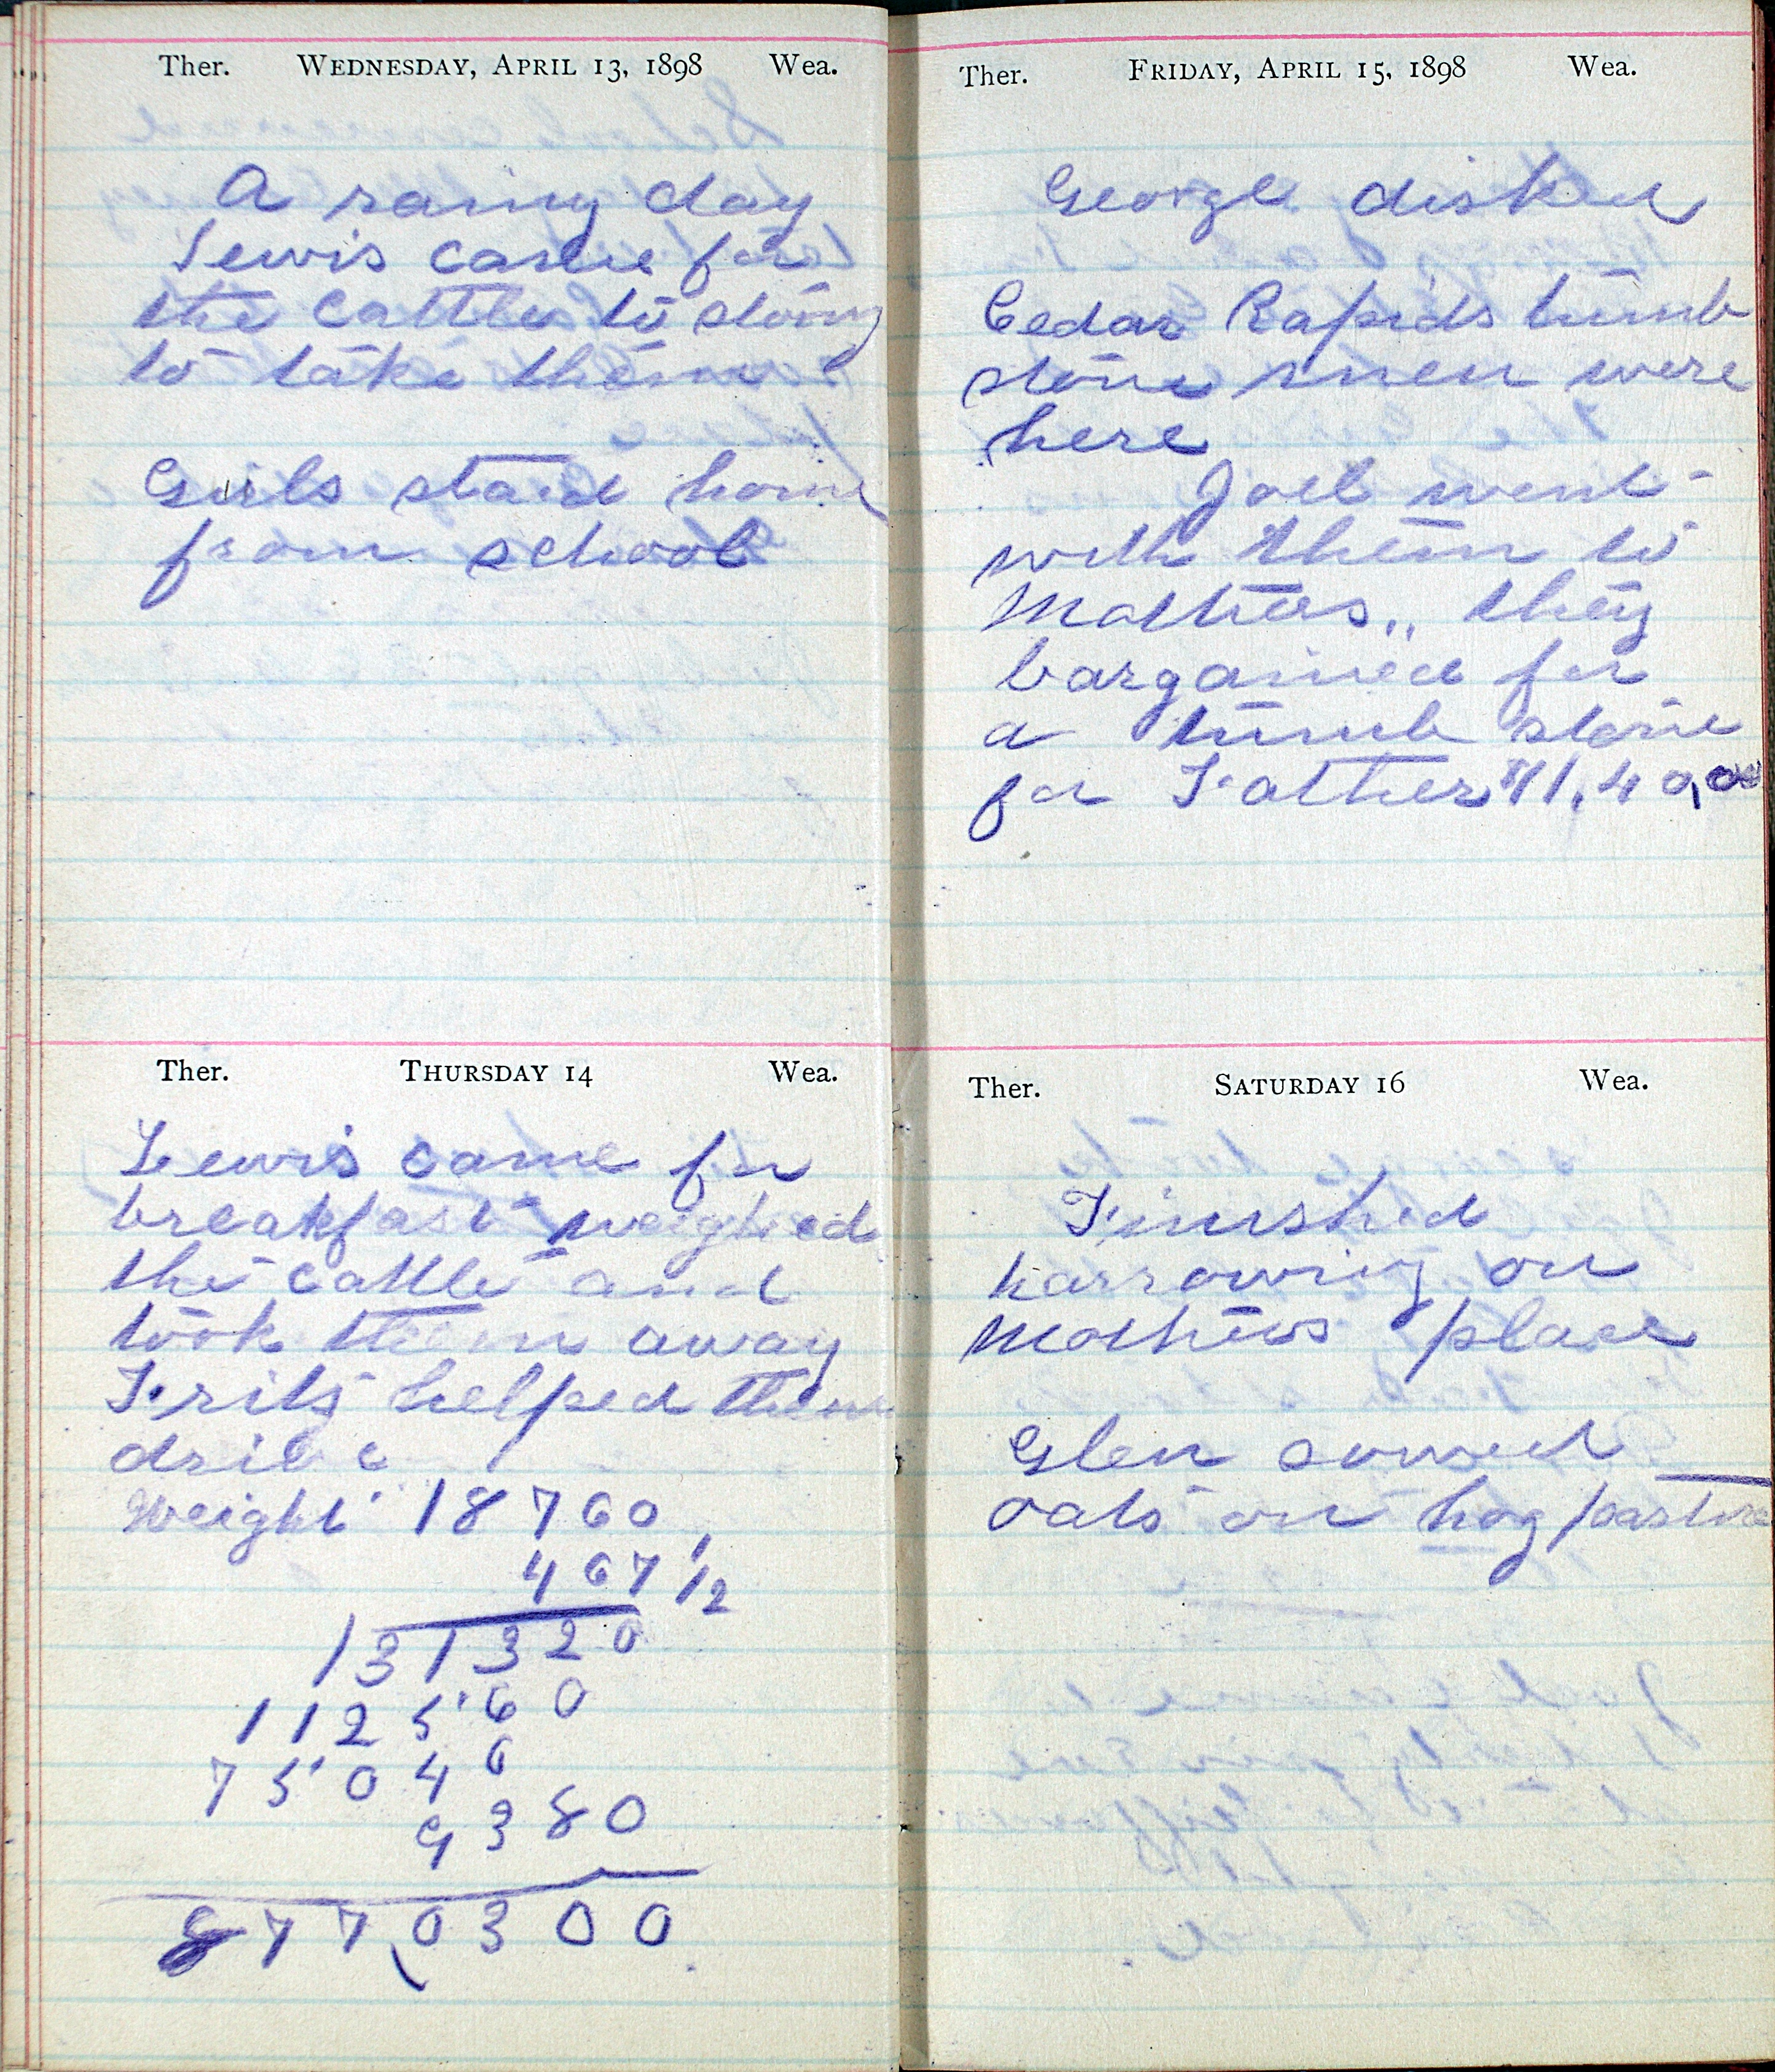 Ther. WEDNESDAY, APRIL 13, 1898 Wea.
A rainy day
Lewis came for
the cattle to stormy
to take them
Girls staid home
from school
Ther. THURSDAY 14 Wea.
Lewis came for
breakfast weighed
the cattle and
took them away
Fritz helped them
drive
Weight 18760
467 1/2
131320
112560
75040
9380
877,0300
Ther. FRIDAY, APRIL 15, 1898 Wea.
George disked
Cedar Rapids tumb
stone men were
here
Joel went
with them to
Mothers,, they
bargained for
a tumb stone
for Father
Ther. SATURDAY 16 Wea.
Finished
harrowing on
Mothers place
Glen sowed
oats on hog pasture